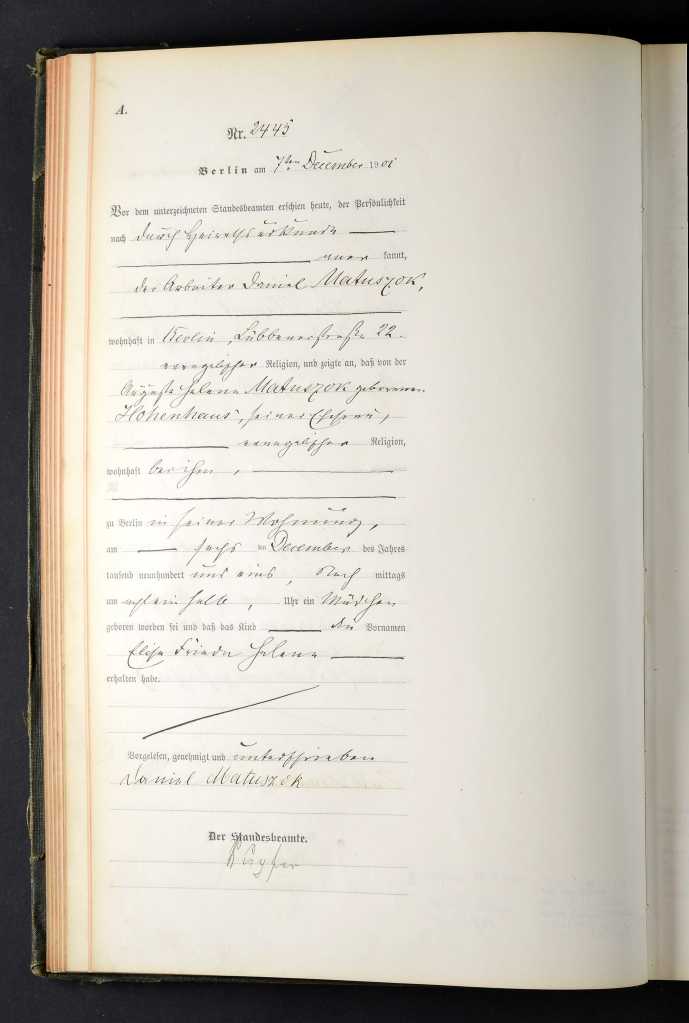 A.
Nr. 2445
Berlin am 7ten December 1901
Vor dem unterzeichneten Standesbeamten erschien heute, der Persönlichkeit
nach durch Heirathsurkunde
aner kannt,
der Arbeiter Daniel Matuszok,
wohnhaft in Berlin, Lübbenerstraße 22.
evangelischer Religion, und zeigte an, daß von der
Auguste Helene Matuszok geborenen
Hohenhaus, seiner Ehefrau,
evangelischer Religion,
wohnhaft bei ihm,
zu Berlin in seiner Wohnung,
am sechs ten December des Jahres
tausend neunhundert und eins, Nach mittags
um acht ein halb, Uhr ein Mädchen
geboren worden sei und daß das Kind die Vornamen
Elise Frieda Helene
erhalten habe.
Vorgelesen, genehmigt und unterschrieben
Daniel Matuszok
Der Standesbeamte.